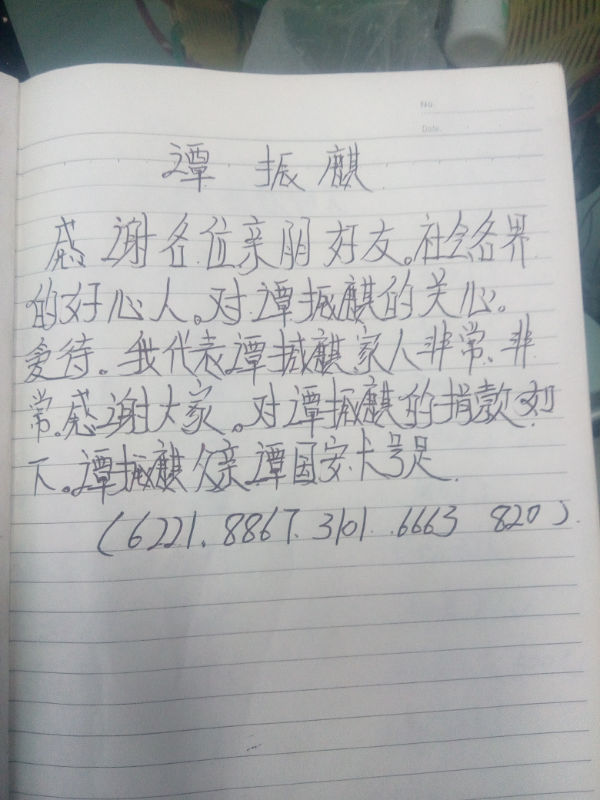 No.
Date.
谭振麒
感谢各位亲朋好友。社会各界
的好心人。对谭振麒的关心。
爱待。我代表谭振麒家人非常、非
常感谢大家。对谭振麒的捐款如
下。谭振麒父亲谭国安卡号是
(6221.8867.3101.6663 820).